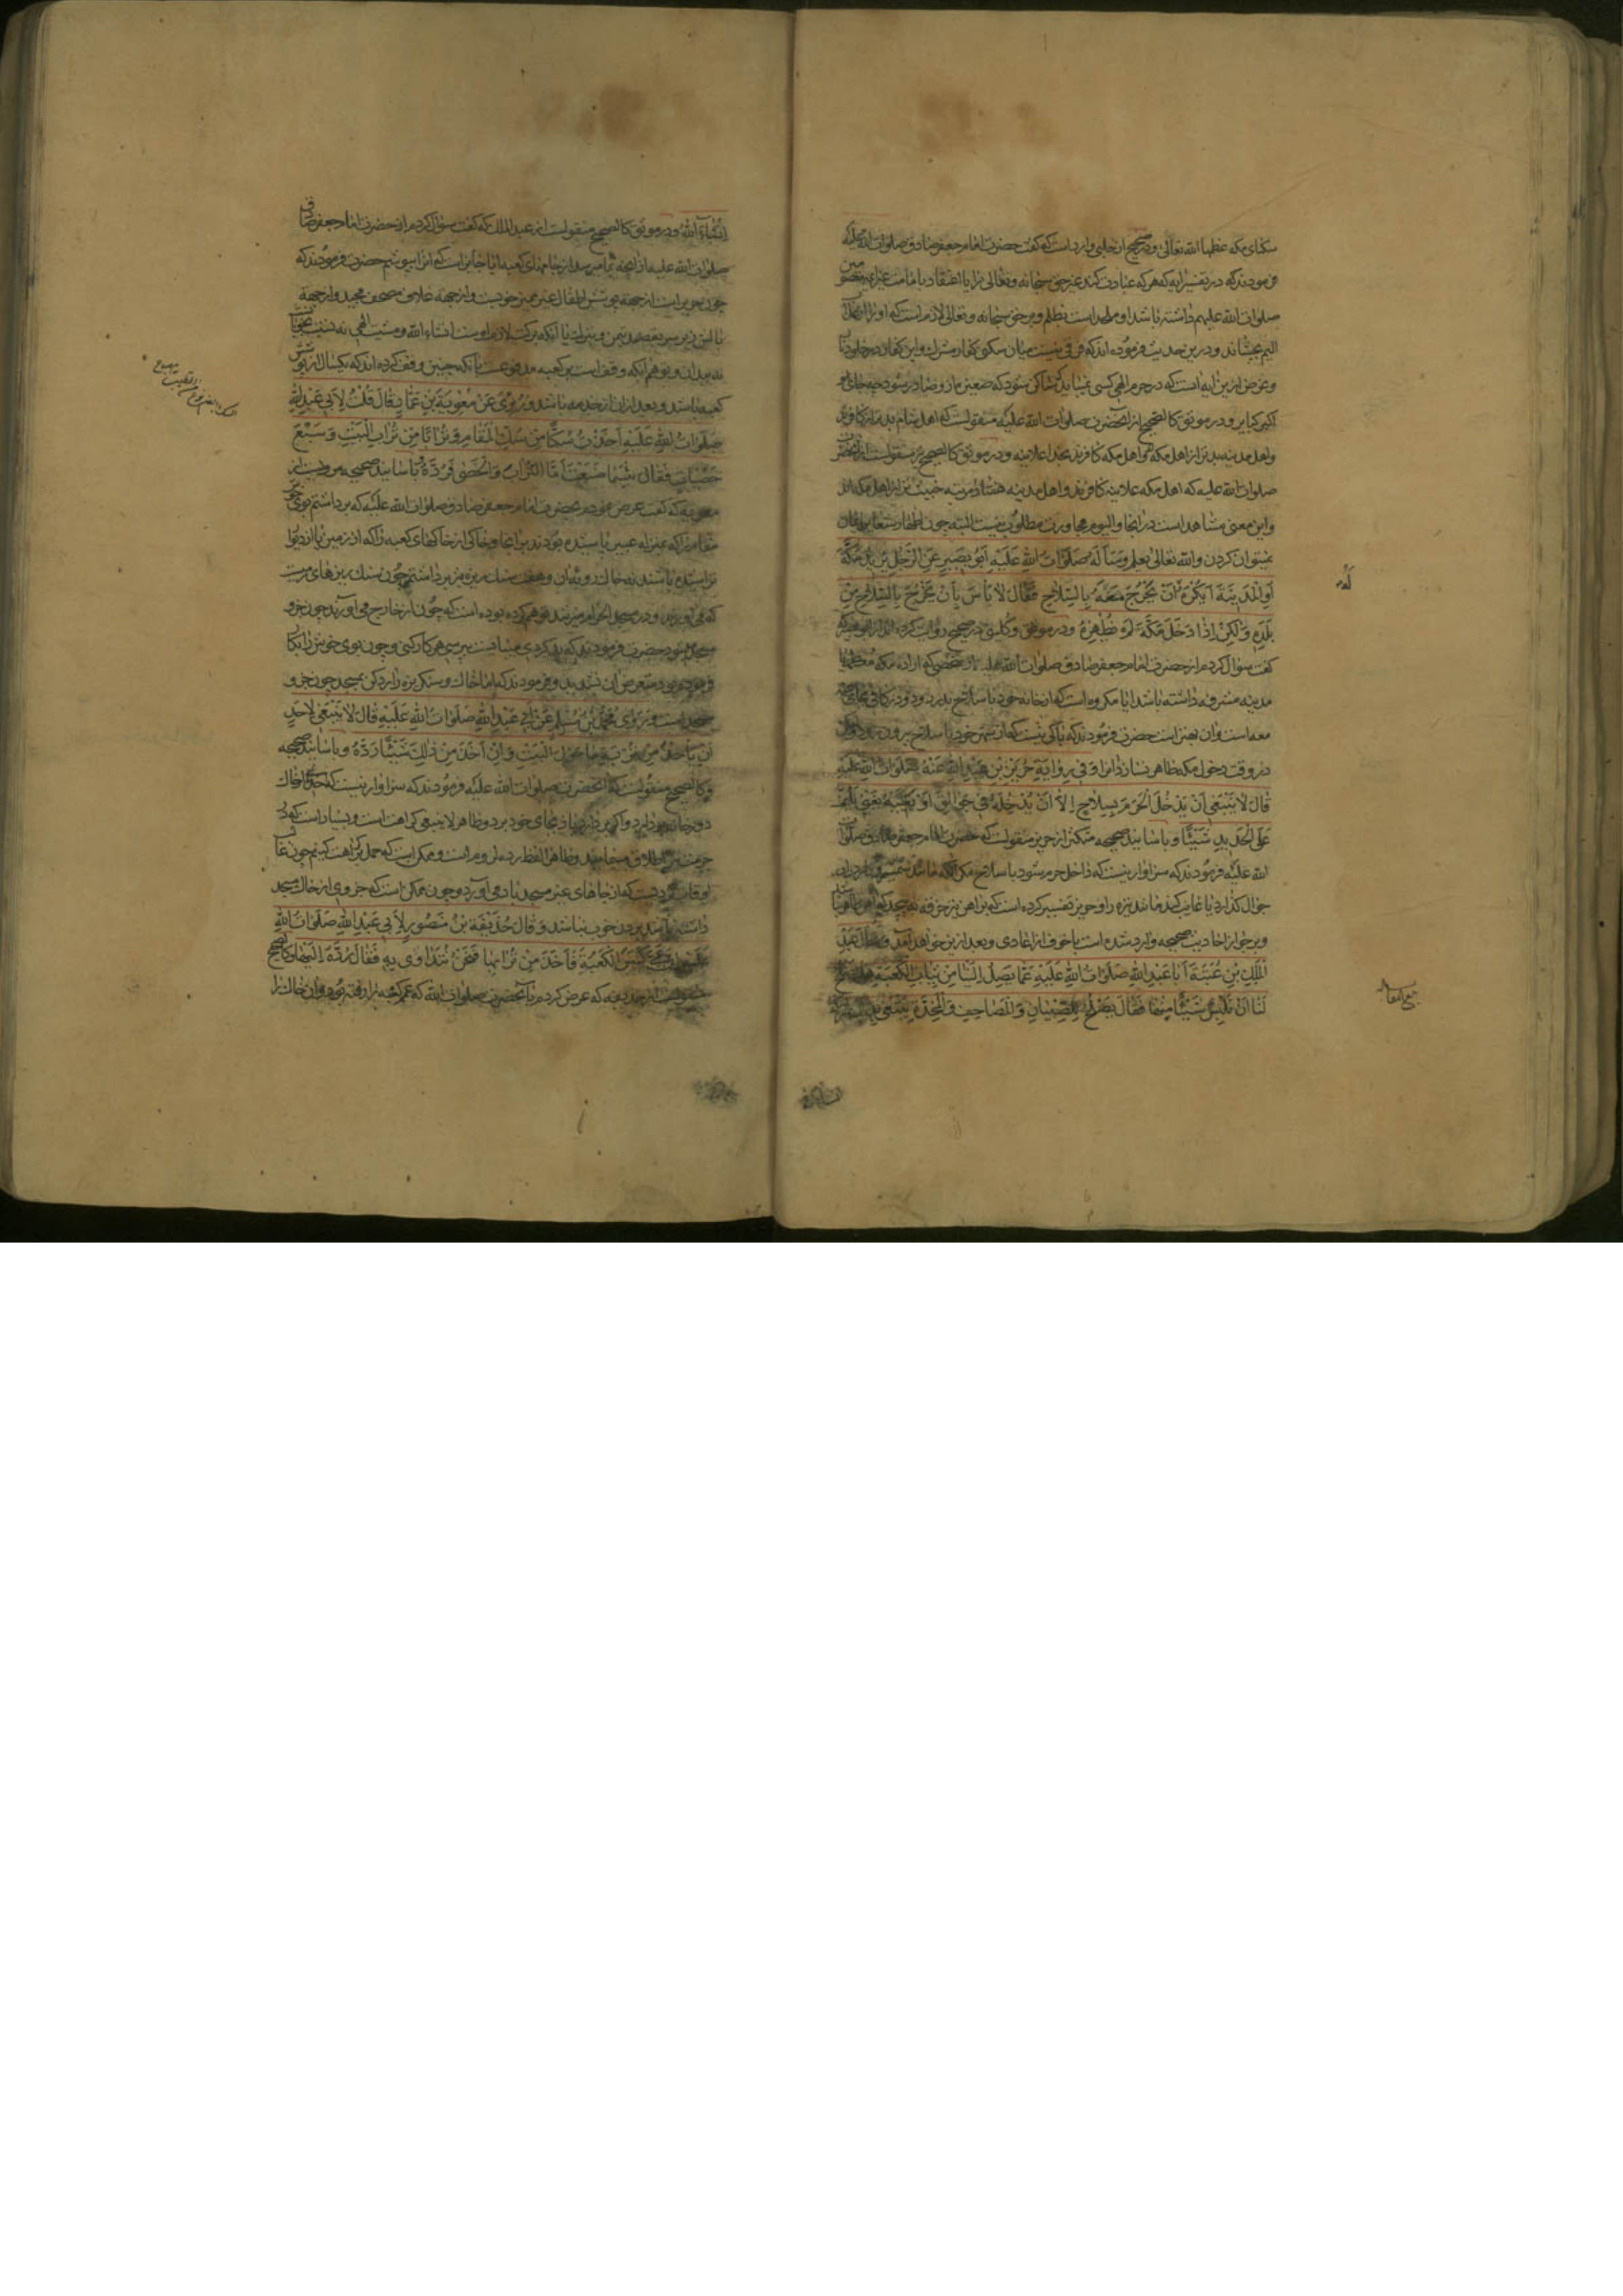 سکنای مکه عظمها الله تعالی و در صحیح از حلبی وارد است که گفت حضرت امام جعفر صادق صلوات الله علیه
فرمودند که در تفسیر آیه که هر که عبادت کند غیر حق سبحانه و تعالی را یا اعتقاد بامامت غیر ائمه معصومین
صلوات الله علیهم داشته باشد او ملحد است بظلم و بر حق سبحانه و تعالی لازم است که او را از عذاب
الیم بچشاند و درین حدیث فرموده اند که فرقی نیست میان سکنی کفار مشرک و این کفار در خلود نار
و غرض ازین آیه است که در حرم الهی کسی نمیباید که ساکن شود که صغیره از و صادر شود چه جای
اکبر کبایر و در موثق کالصحیح از آنحضرت صلوات الله علیه منقولست که اهل شام بدتر از کافر
و اهل مدینه بدتر از اهل مکه اند و اهل مکه کافرند بخدا علانیه و در موثق کالصحیح منقولست از آنحضرت
صلوات الله علیه که اهل مکه علانیه کافرند و اهل مدینه هفتاد مرتبه خبیث تر از اهل مکه اند
و این معنی مشاهد است در آنجا و الیوم مجاورت مطلوب نیست البته چون اظهار شعایر ایمان
نمیتوان کردن و الله تعالی یعلم وَسَأَلَهُ صَلَوَاتُ اللهِ عَلَیْهِ اَبُو بَصِیرٍ عَنِ الرَّجُلِ یُرِیدُ مَکَّةَ
اَوِ الْمَدِینَةَ اَیُکْرَهُ اَنْ یَخْرُجَ مَعَهُ بِالسِّلَاحِ فَقَالَ لَا بَأْسَ بِأَنْ یَخْرُجَ بِالسِّلَاحِ مِنْ
بَلَدِهِ وَلَکِنْ اِذَا دَخَلَ مَکَّةَ لَمْ یُظْهِرْهُ و در موثق و کلینی در صحیح روایت کرده اند از ابو بصیر که
گفت سؤال کردم از حضرت امام جعفر صادق صلوات الله علیه از شخصی که اراده مکه معظمه یا
مدینه مشرفه داشته باشد آیا مکروه است که از خانه خود با سلاح بدر رود و در کافی بجای
معه است و آن بهتر است حضرت فرمودند که باکی نیست که از شهر خود با سلاح بیرون رود و لیکن
در وقت دخول مکه ظاهر نسازد آنرا وَفِی رِوَایَةِ حَرِیزِ بْنِ عَبْدِ اللهِ عَنْهُ صَلَوَاتُ اللهِ عَلَیْهِ
قَالَ لَا یَنْبَغِی اَنْ یَدْخُلَ الْحَرَمَ بِسِلَاحٍ اِلَّا اَنْ یُدْخِلَهُ فِی جَوَالِقَ اَوْ یُغَیِّبَهُ یَعْنِی یَلُفُّ
عَلَی الْحَدِیدِ شَیْئًا و باسانید صحیحه متکثره از حریز منقولست که حضرت امام جعفر صادق صلوات
الله علیه فرمودند که سزاوار نیست که داخل حرم شود با سلاح مگر آنکه مانند شمشیر را در
جوال گذارد یا غایب کند مانند نیزه را و حریز تفسیر کرده است که بر آهن نیزه خرقه به پیچد که آهن
و بر جواز احادیث صحیحه وارد شده است با خوف از اعادی و بعد ازین خواهد آمد وَسَأَلَ عَبْدُ
الْمَلِکِ بْنُ عُتْبَةَ اَبَا عَبْدِ اللهِ صَلَوَاتُ اللهِ عَلَیْهِ عَمَّا یَصِلُ اِلَیْنَا مِنْ ثِیَابِ الْکَعْبَةِ هَلْ یَصْلُحُ
لَنَا اَنْ نَلْبِسَ شَیْئًا مِنْهَا فَقَالَ یَصْلُحُ لِلصِّبْیَانِ وَالْمَصَاحِفِ وَالْمِخَدَّةِ یَبْتَغِی بِذَلِکَ الْبَرَکَةَ
انشاء الله و در موثق کالصحیح منقولست از عبد الملک که گفت سؤال کردم از حضرت امام جعفر صادق
صلوات الله علیه از آنچه بما میرسد از جامهای کعبه آیا جایز است که آنرا بپوشیم حضرت فرمودند که
چون حریر است از جهة پوشش اطفال غیر ممیز خوبست و از جهة غلاف مصحف مجید و از جهة
بالش زیر سر بقصد تیمن و تبرک یا آنکه برکت لازم اوست انشاء الله و مشیت الهی
بدان و توهم آنکه وقف است بر کعبه مدفوعست بآنکه چنین وقف کرده اند که یکسال از پوشش
کعبه باشد و بعد از آن از خدمه باشد وَرُوِیَ عَنْ مُعٰوِیَةَ بْنِ عَمَّارٍ قَالَ قُلْتُ لِاَبِی عَبْدِ اللهِ
صَلَوَاتُ اللهِ عَلَیْهِ اَخَذْتُ سُکًّا مِنْ سُکِّ الْمَقَامِ وَتُرَابًا مِنْ تُرَابِ الْبَیْتِ وَسَبْعَ
حَصَیَاتٍ فَقَالَ بِئْسَمَا صَنَعْتَ اَمَّا التُّرَابُ وَالْحَصٰی فَرُدَّهُ باسانید صحیحه مرویست از
معویه که گفت عرض نمودم بحضرت امام جعفر صادق صلوات الله علیه که برداشتم بوی خوش
مقام را که بمنزله عبیر باشد بودند در آنجا و خاکی از خاکهای کعبه را که از زمین یا از دیوار
تراشیده باشند نه خاک روبه آن و هفت سنک ریزه نیز برداشتم چون سنک ریزهای
که می آورند و در مسجد الحرام میریزند توهم کرده بوده است که چون از خارج می آورند چون جزو
مسجد میشود حضرت فرمودند که بد کردی میبایست بپرسی هر کار کنی و چون بوی خوش را بکار
فرموده بود متعرض آن نشدند و فرمودند که اما خاک و سنکریزه را رد کن بمسجد چون جزو
مسجد است وَرَوٰی مُحَمَّدُ بْنُ مُسْلِمٍ عَنْ اَبِی عَبْدِ اللهِ صَلَوَاتُ اللهِ عَلَیْهِ قَالَ لَا یَنْبَغِی لِاَحَدٍ
اَنْ یَأْخُذَ مِنْ تُرْبَةِ مَا حَوْلَ الْبَیْتِ وَاِنْ اَخَذَ مِنْ ذٰلِکَ شَیْئًا رَدَّهُ و باسانید صحیحه
و کالصحیح منقولست که آنحضرت صلوات الله علیه فرمودند که سزاوار نیست که احدی خاک
دور خانه بردارد و اگر بردارد باز بجای خود برد و ظاهر لا ینبغی کراهت است و بسیار است که بر
حرمت نیز اطلاق مینمایند و ظاهر لفظ رده لزوم است و ممکن است که حمل بر کراهت کنیم چون غالب
اوقات کردیست که از جاهای غیر مسجد باد می آورد و چون ممکن است که جزوی از خاک مسجد
داشته باشد بردن خوب نباشد وَقَالَ حُذَیْفَةُ بْنُ مَنْصُورٍ لِاَبِی عَبْدِ اللهِ صَلَوَاتُ اللهِ
عَلَیْهِ اِنَّ عَمِّی کَنَسَ الْکَعْبَةَ فَاَخَذَ مِنْ تُرَابِهَا فَنَحْنُ نَتَدَاوٰی بِهِ فَقَالَ رُدَّهُ اِلَیْهَا و کالصحیح
منقولست از حذیفه که عرض کردم بآنحضرت صلوات الله که عمم کعبه را رفته بود و آن خاک را